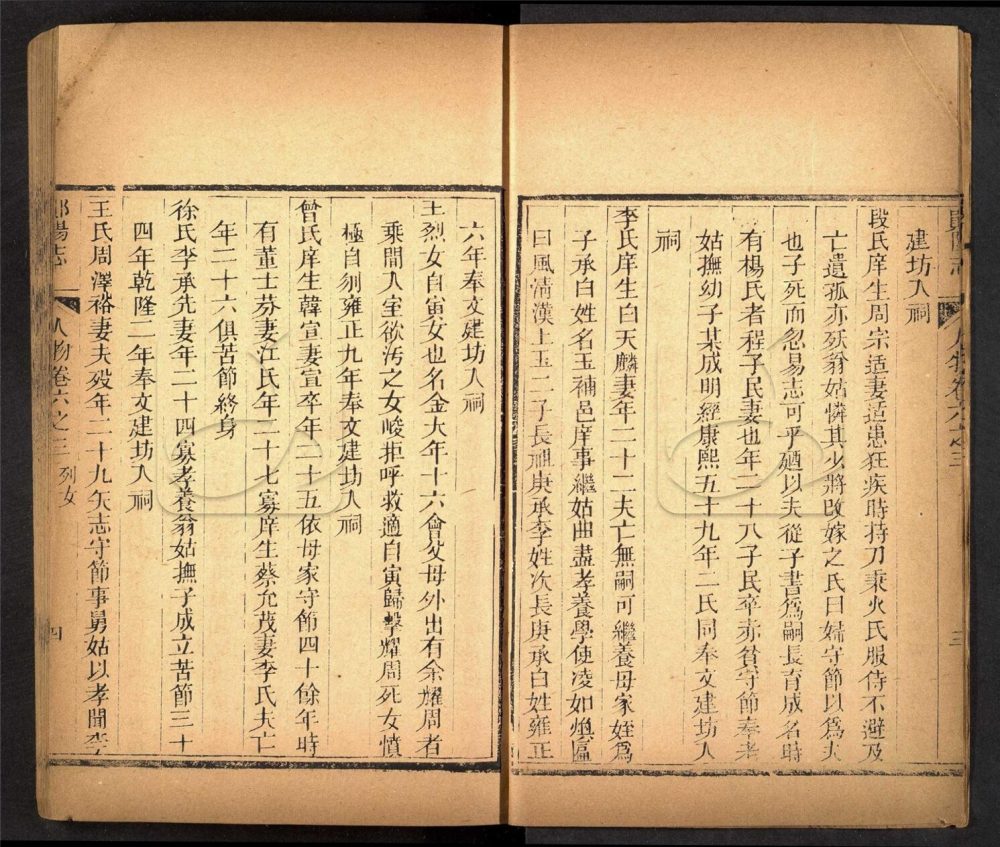 建坊入祠
段氏庠生周宗适妻适患狂疾時持刀秉火氏服侍不避及
亡遺孤亦殀翁姑憐其少將改嫁之氏曰婦守節以爲夫
也子死而忽易志可乎廼以夫從子書爲嗣長育成名時
有楊氏者程子民妻也年二十八子民卒赤貧守節奉老
姑撫幼子某成明經康熙五十九年二氏同奉文建坊入
祠
李氏庠生白天麟妻年二十二夫亡無嗣可繼養母家姪爲
子承白姓名玉補邑庠事繼姑曲盡孝養學使凌如煥區
曰風淸漢上玉二子長祖庚承李姓次長庚承白姓雍正
人物卷六之三
三
六年奉文建坊入祠
王烈女自寅女也名金大年十六會父母外出有余耀周者
乘間入室欲污之女峻拒呼救適自寅歸擊耀周死女憤
極自刎雍正九年奉文建坊入祠
曾氏庠生韓宣妻宣卒年二十五依母家守節四十餘年時
有董士芬妻江氏年二十七寡庠生蔡允茂妻李氏夫亡
年二十六俱苦節終身
徐氏李承先妻年二十四寡孝養翁姑撫子成立苦節三十
四年乾隆二年奉文建坊入祠
王氏周澤裕妻夫歿年二十九矢志守節事舅姑以孝聞李
陽志
人物卷六之三
列女
四